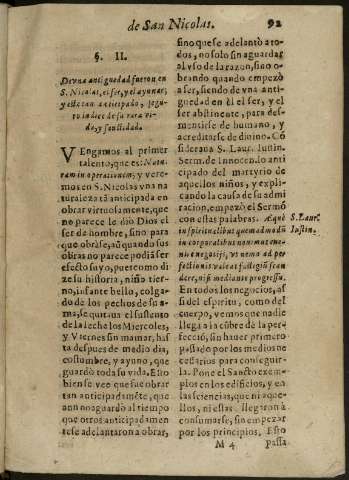 de San Nicolas. 92
§. II.
De vna antiguedad fueron en
S. Nicolas, el ser, y el ayunar,
y este tan anticipado, segu-
ro indice de su rara vi-
da, y santidad.
VEngamos al primer
talento, que es: Natu-
ram in operationem; y vere-
mos en S. Nicolas vna na
turaleza tã anticipada en
obrar virtuosamente, que
no parece le diò Dios el
ser de hombre, sino para
que obrase, aũ quando sus
obras no parece podiã ser
efecto suyo, pues como di
ze su historia, niño tier-
no, infante bello, colga-
do de los pechos de su a-
ma, se quitaua el sustento
de la leche los Miercoles,
y Viernes sin mamar, has
ta despues de medio dia,
costumbre, y ayuno, que
guardò toda su vida. Esto
bien se vee que fue obrar
tan anticipadamẽte, que
aun no aguardò al tiempo
que otros anticipadamen
te se adelantaron à obrar,
sino que se adelantò a to-
dos, no solo sin aguardar
al vso de la razon, sino o-
brando quando empezò
a ser, siendo de vna anti-
guedad en èl el ser, y el
ser abstinente, para des-
mentirse de humano, y
acreditarse de diuino. Cõ
sideraua S. Laur. Iustin.
Serm. de Innocen. lo anti
cipado del martyrio de
aquellos niños, y expli-
cando la causa de su admi
racion, empezò el Sermõ
con estas palabras. Æquè
in spiritalibus quemadmodũ
in corporalibus nemi
nis negotijs, vt nemo ad per
fectionis valeat fastigiũ scan
dere, nisi mediante progressu.
En todos los negocios, as
si del espiritu, como del
cuerpo, vemos que nadie
llega a la cũbre de la per-
feccià, sin hauer primero
passado por los medios ne
cessarios para conseguir-
la. Pone el Sancto exem-
plos en los edificios, y en
las sciencias, que ni aque-
llos, ni estas llegaron à
consumarse, sin empezar
por los principios. Esto
S. Laur.
Iustin.
M 4 Passa